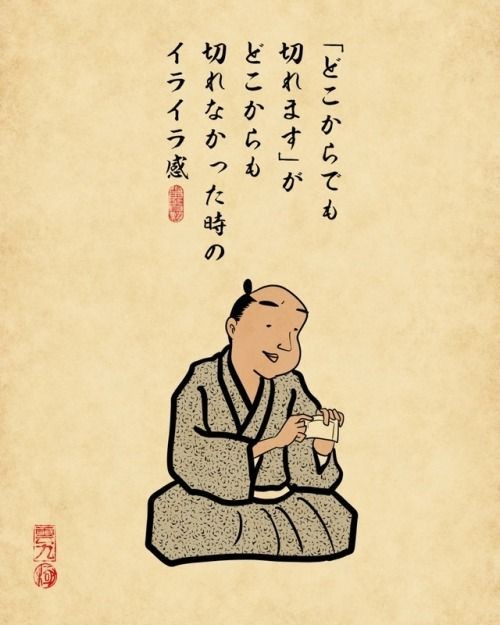 「どこからでも
切れます」が
どこからも
切れなかった時の
イライラ感